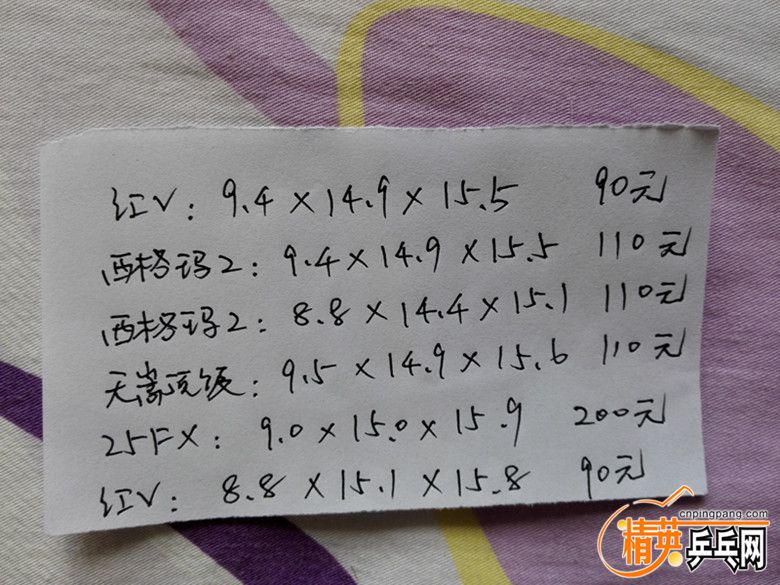 红V: 9.4×14.9×15.5 90元
西格玛2: 9.4×14.9×15.5 110元
西格玛2: 8.8×14.4×15.1 110元
无嵩顶级: 9.5×14.9×15.6 110元
25FX: 9.0×15.0×15.9 200元
红V: 8.8×15.1×15.8 90元
cnpingpang.com
精英乒乓网